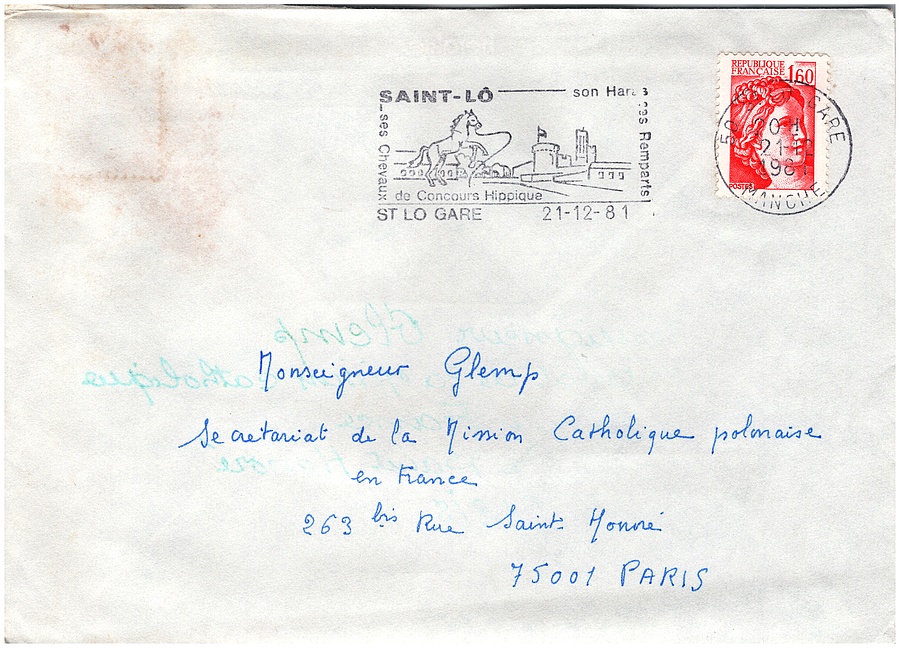 SAINT-LÔ son Haras
ses Chevaux
ses Remparts
de Concours Hippique
ST LO GARE 21-12-81
REPUBLIQUE
FRANÇAISE 1,60
POSTES
50 GARE
20-H
21-12
1981
MANCHE
Monseigneur Glemp
Secretariat de la Mission Catholique polonaise
en France
263 bis Rue Saint-Honoré
75001 PARIS